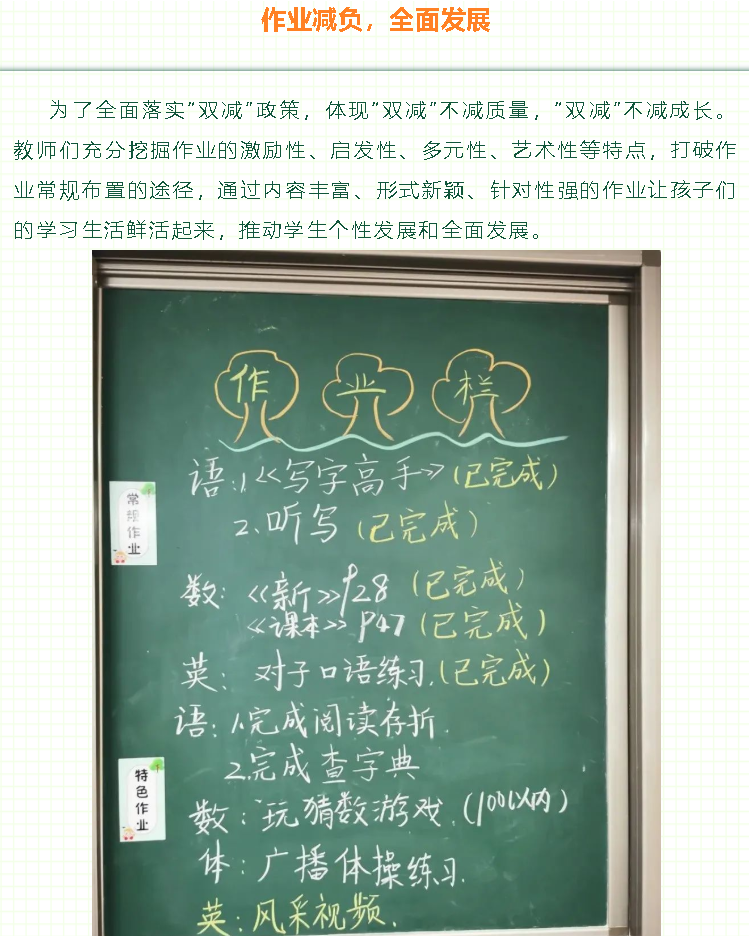 作业减负，全面发展
为了全面落实“双减”政策，体现“双减”不减质量，“双减”不减成长。
教师们充分挖掘作业的激励性、启发性、多元性、艺术性等特点，打破作
业常规布置的途径，通过内容丰富、形式新颖、针对性强的作业让孩子们
的学习生活鲜活起来，推动学生个性发展和全面发展。
作业栏
常规作业
语:1.《写字高手》(已完成)
2.听写(已完成)
数:《新》P28(已完成)
《课本》P47(已完成)
英:对子口语练习.(已完成)
特色作业
语:1.完成阅读存折.
2.完成查字典
数:玩猜数游戏.(100以内)
体:广播体操练习.
英:风采视频.